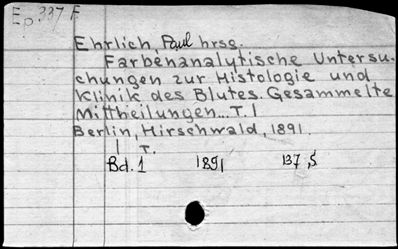 Ep 337 F
Ehrlich, Paul hrsg.
Farbenanalytische Untersu-
chungen zur Histologie und
Klinik des Blutes. Gesammelte
Mittheilungen... T. I
Berlin, Hirschwald, 1891.
I T.
Bd. 1 1891 137 S